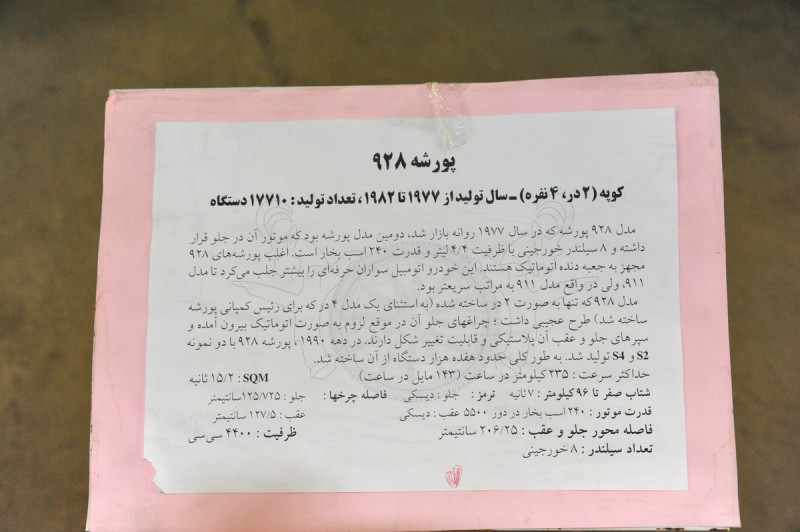 پورشه ۹۲۸
کوپه (۲ در، ۴ نفره) ـ سال تولید از ۱۹۷۷ تا ۱۹۸۲، تعداد تولید: ۱۷۷۱۰ دستگاه
مدل ۹۲۸ پورشه که در سال ۱۹۷۷ روانه بازار شد، دومین مدل پورشه بود که موتور آن در جلو قرار
داشته و ۸ سیلندر خورجینی با ظرفیت ۴/۴ لیتر و قدرت ۲۴۰ اسب بخار است. اغلب پورشه‌های ۹۲۸
مجهز به جعبه دنده اتوماتیک هستند. این خودرو اتومبیل سواران حرفه‌ای را بیشتر جلب می‌کرد تا مدل
۹۱۱، ولی در واقع مدل ۹۱۱ به مراتب سریعتر بود.
مدل ۹۲۸ که تنها به صورت ۲ در ساخته شده (به استثنای یک مدل ۴ در که برای رئیس کمپانی پورشه
ساخته شد) طرح عجیبی داشت؛ چراغهای جلو آن در موقع لزوم به صورت اتوماتیک بیرون آمده و
سپرهای جلو و عقب آن پلاستیکی و قابلیت تغییر شکل دارند. در دهه ۱۹۹۰، پورشه ۹۲۸ با دو نمونه
S2 و S4 تولید شد. به طور کلی حدود هفده هزار دستگاه از آن ساخته شد.
حداکثر سرعت: ۲۳۵ کیلومتر در ساعت (۱۴۳ مایل در ساعت) SQM: ۱۵/۲ ثانیه
شتاب صفر تا ۹۶ کیلومتر: ۷ ثانیه ترمز: جلو: دیسکی فاصله چرخها: جلو: ۱۲۵/۷۲۵ سانتیمتر
قدرت موتور: ۲۴۰ اسب بخار در دور ۵۵۰۰ عقب: دیسکی عقب: ۱۲۷/۵ سانتیمتر
فاصله محور جلو و عقب: ۲۰۶/۲۵ سانتیمتر ظرفیت: ۴۴۰۰ سی‌سی
تعداد سیلندر: ۸ خورجینی